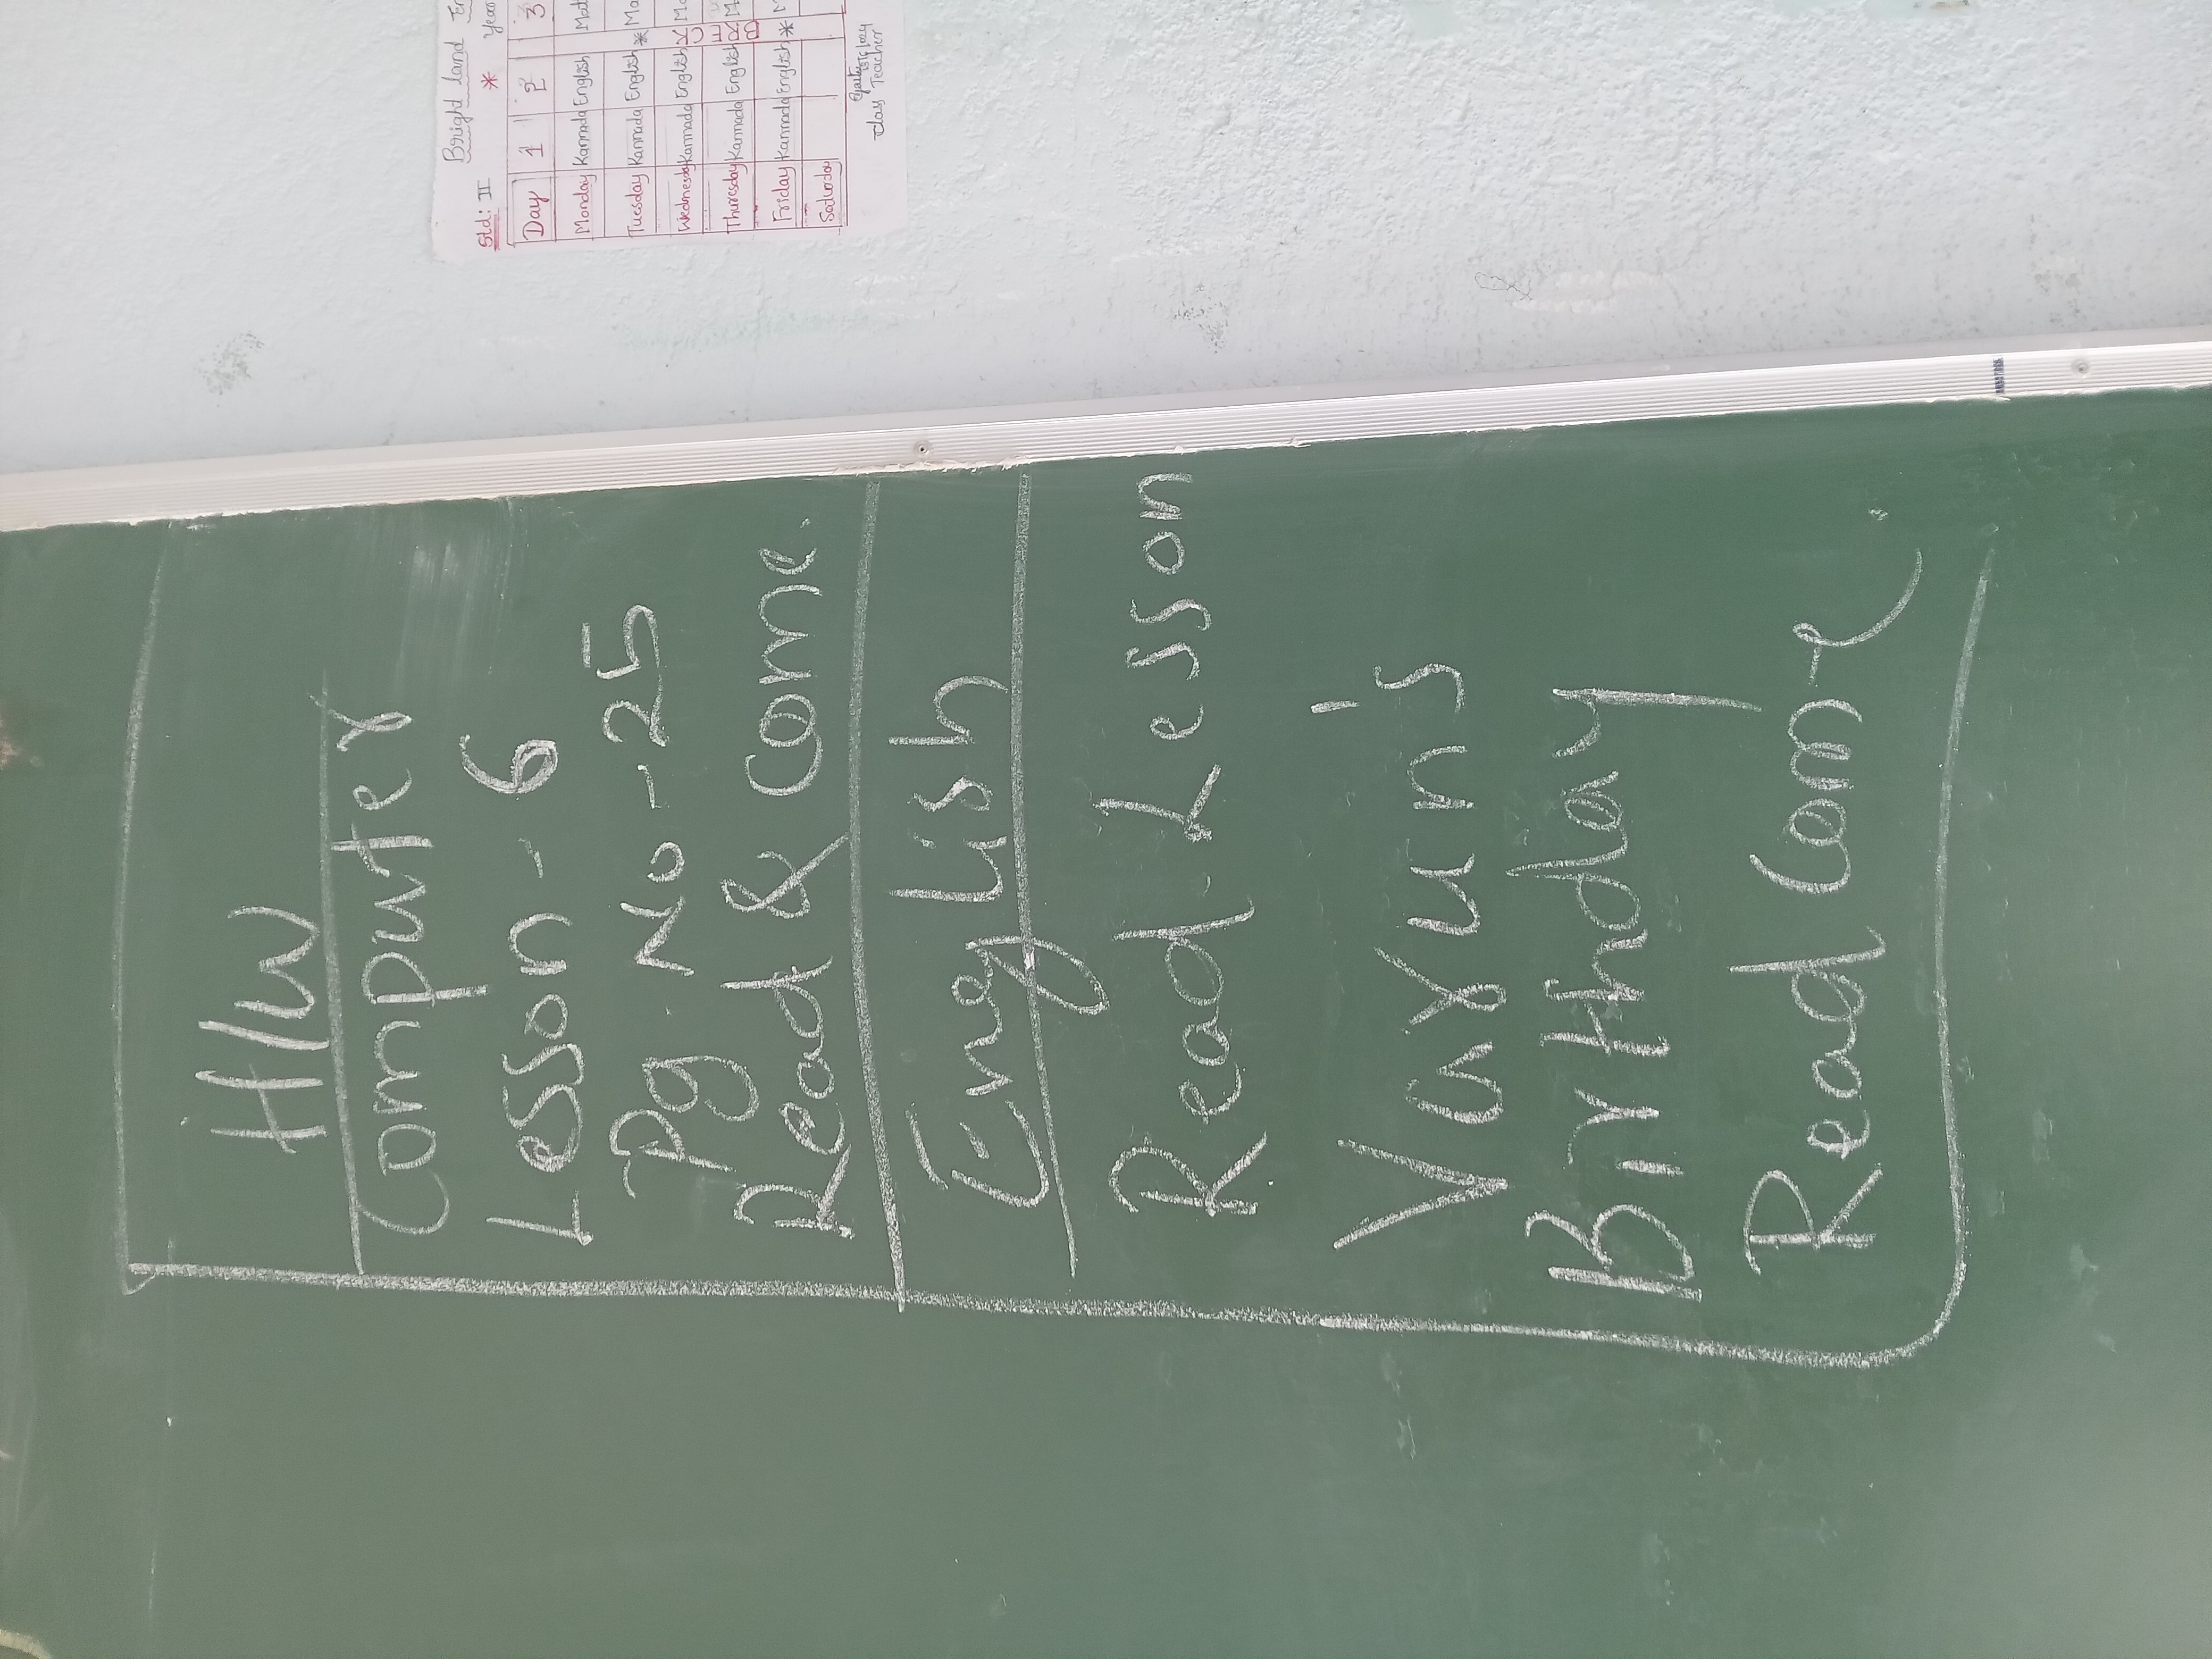 H/W
Computer
Lesson - 6
Pg No - 25
Read & Come.
English
Read Lesson
Varun's
Birthday
Read Come.
Bright Land
Std: II * Year
Day 1 2 3
Monday Kannada English
Tuesday Kannada English *
Wednesday Kannada English
Thursday Kannada English
Friday Kannada English *
Saturday
Class Teacher